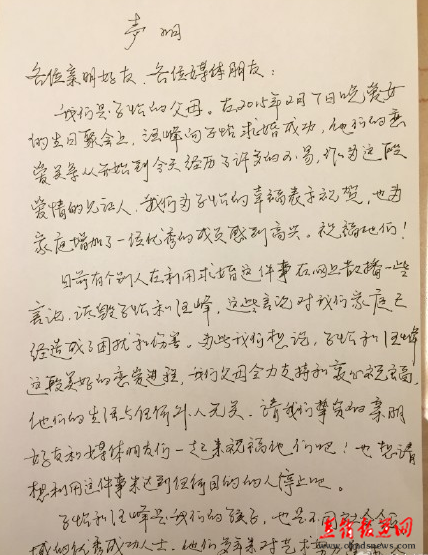 声明
各位亲朋好友、各位媒体朋友：
我们是子怡的父母。在2015年2月7日晚爱女
的生日聚会上，汪峰向子怡求婚成功，他们的恋
爱关系从开始到今天经历了许多的不易，作为这段
爱情的见证人，我们为子怡的幸福表示祝贺，也为
家庭增加了一位优秀的成员感到高兴。祝福他们！
目前有个别人在利用求婚这件事在网上散播一些
言论，诋毁子怡和汪峰，这些言论对我们家庭已
经造成了困扰和伤害。为此我们想说，子怡和汪峰
这段美好的恋爱进程，我们父母全力支持和衷心祝福，
他们的生活与任何外人无关。请我们挚爱的亲朋
好友和媒体朋友们一起来祝福他们吧！也想请
想利用这件事来达到任何目的的人停止吧。
子怡和汪峰是我们的孩子，也是不同
域的优秀成功人士，他们